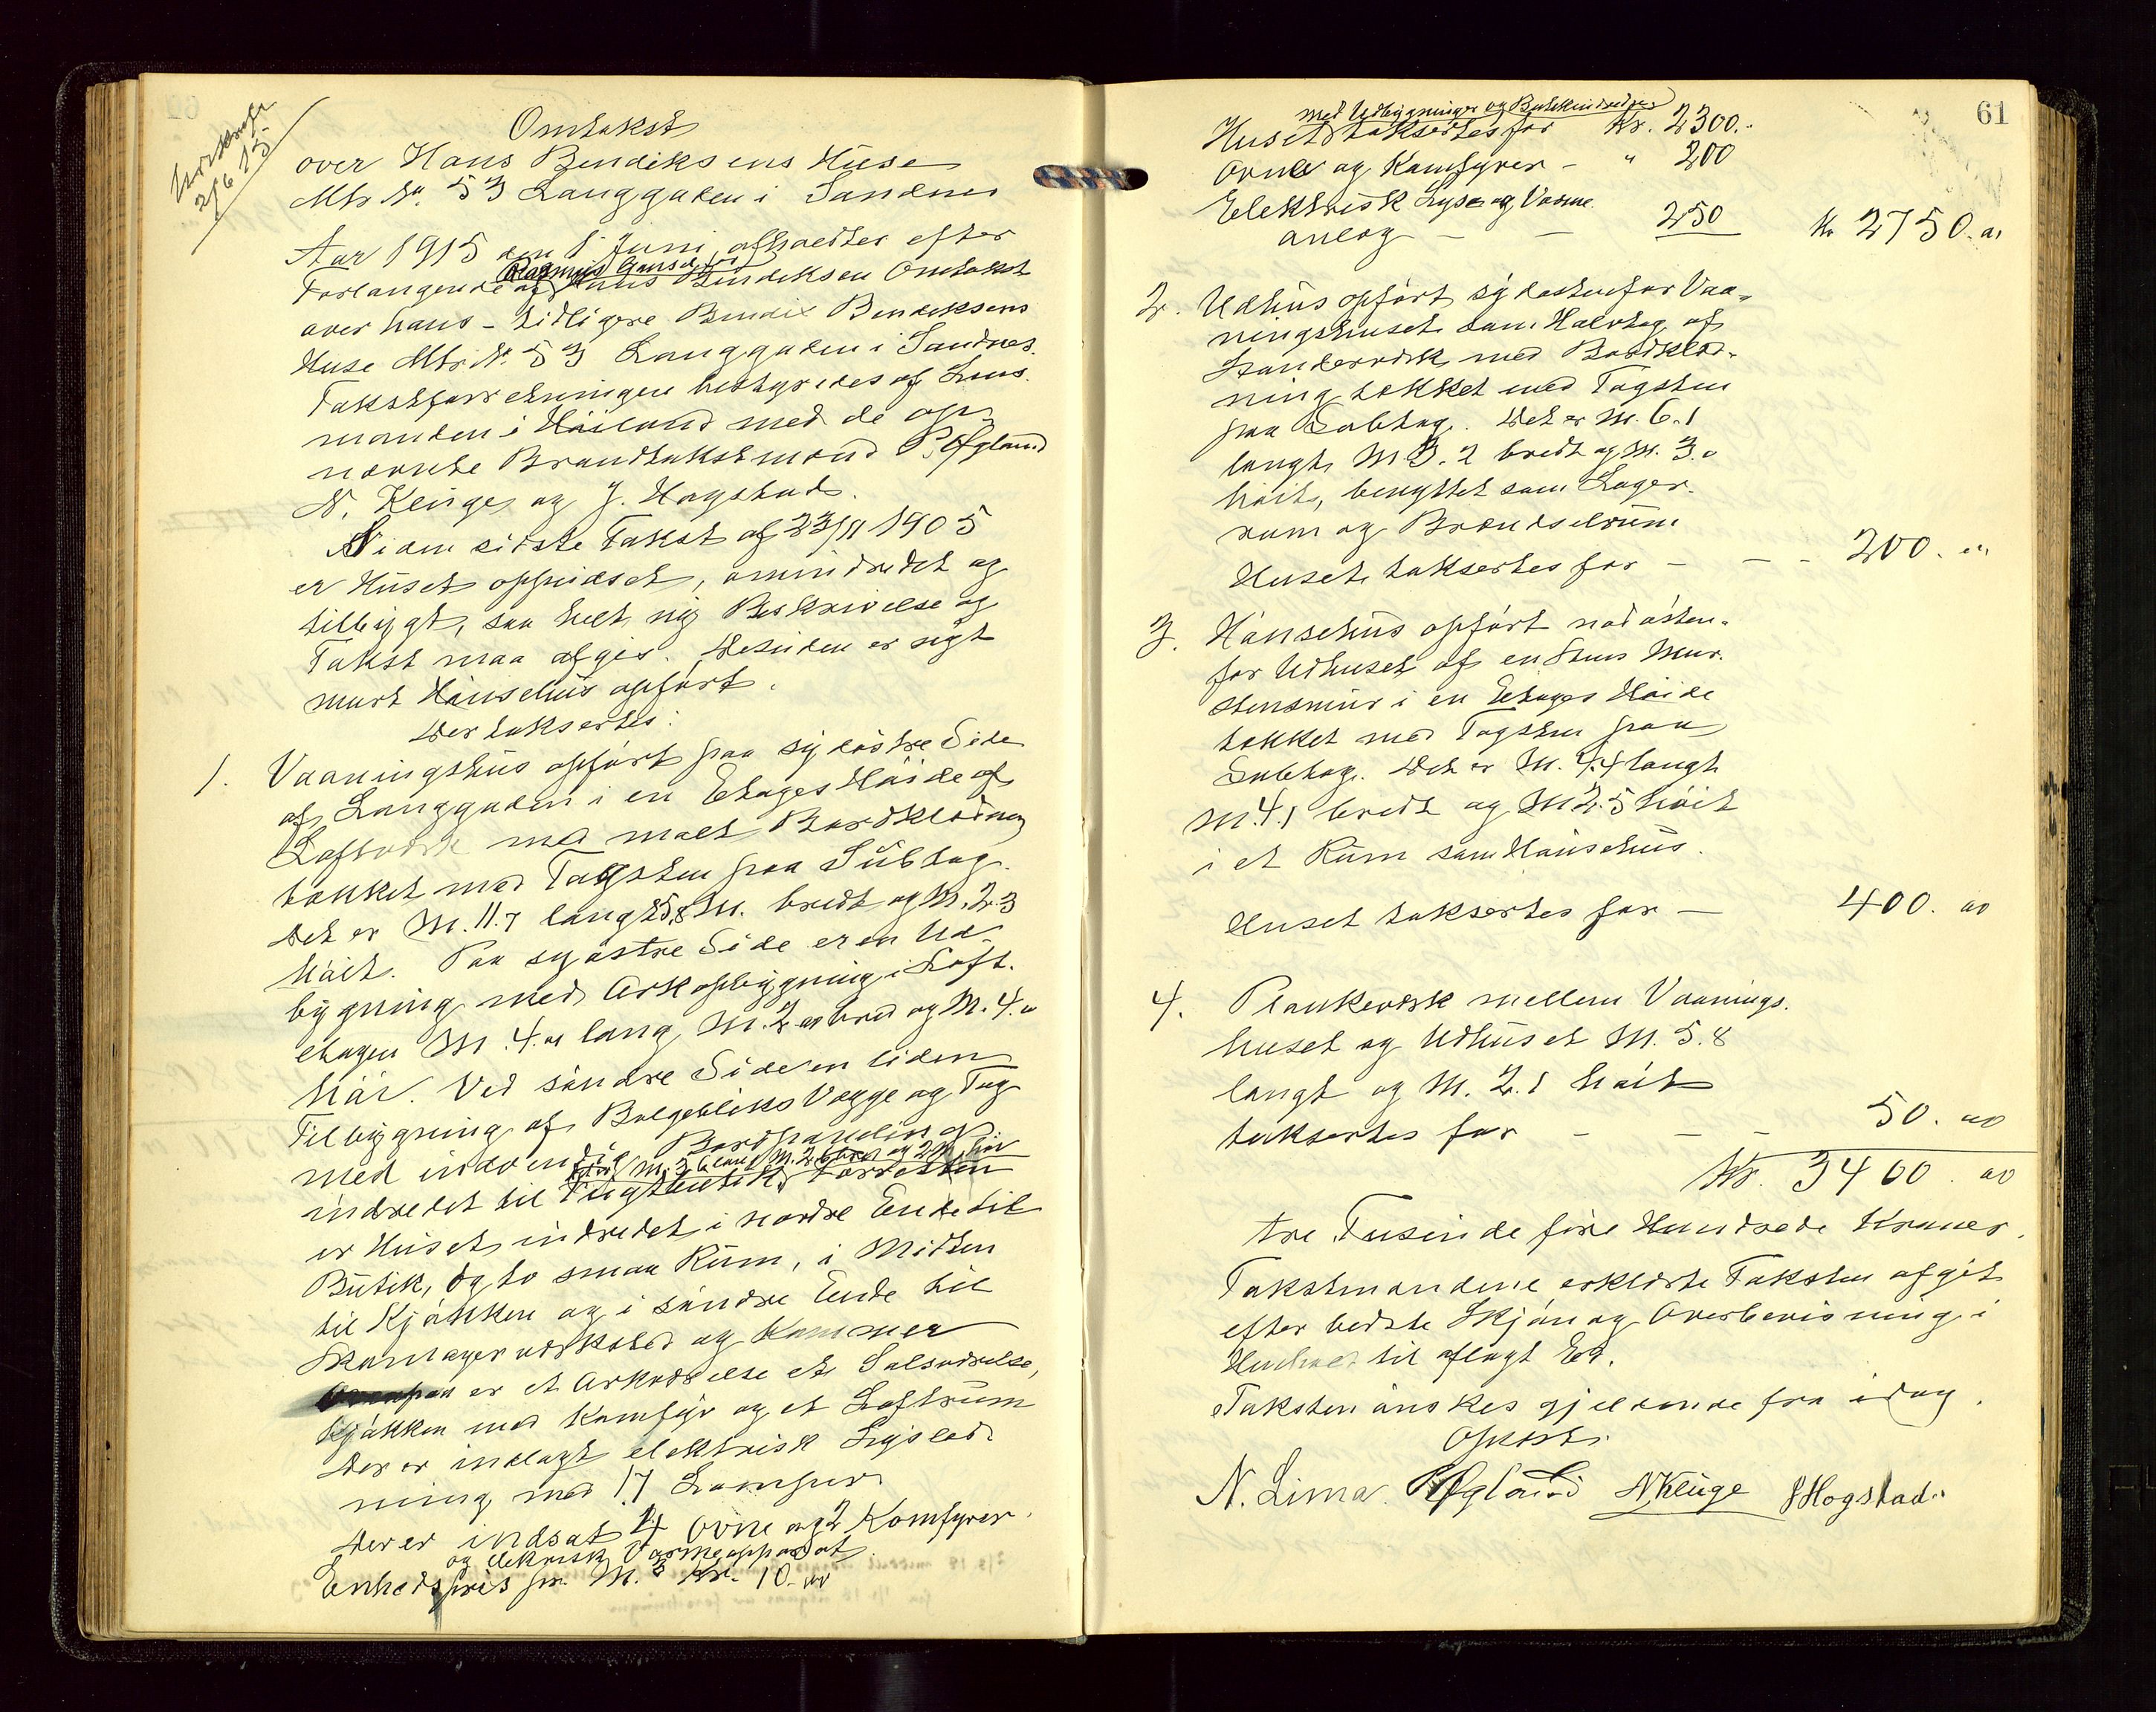 2/6 15
Omtakst
over Hans Bendiksens Huse
Mtr. N. 53 Langgaden i Sandnes
Aar 1915 den 1 Juni afholdtes efter
Rasmus
Forlangende af Hans Bendiksen Omtakst
over hans - tidligere Bendix Bendiksens
Huse Mtr. N. 53 Langgaden i Sandnes.
Takstforretningen bestyredes af Lens-
manden i Höiland med de op-
nævnte Brandtakstmænd P. Øgland
N. Kluge og J. Hogstad.
Siden sidste Takst af 23/11 1905
er Huset oppudset, omindredet og
tilbygt, saa helt ny Beskrivelse og
Takst maa afgis. Desuden er nyt
muret Hönsehus opfört.
Der taksertes:
1. Vaaningshus opfört paa sydöstre Side
af Langgaden i en Etages Höide af
Loftverk med malt Bordklædning
tækket med Tagsten paa Subtag.
Det er M. 11.7 langt 5.8 M. bredt og M. 2.3
höit. Paa sydöstre Side er en Ud-
bygning med Arkopbygning i Loft-
etagen M. 4.00 lang, M. 2.00 bred og M. 4.0
höi. Ved söndre Side en liden
Tilbygning af Bølgebliks Vægge og Tag
med indvendig Bordpaneling
M. 3.6 lang M. 2.6 bred og 2 M. höi
indredet til Frugtbutik. Forresten
er Huset indredet i nordre Ende til
Butik, og to smaa Rum, i Midten
til Kjökken og i söndre Ende til
Skomagerverksted og Kammer
Ovenpaa er et Arkværelse et Salsværelse,
Kjökken med Komfyr og et Loftrum
Der er indlagt elektrisk Lysled-
ning med 17 Lamper
Der er indsat 4 Ovne og 2 Komfyrer.
og elektrisk Varmeapparat.
Enhedspris pr. M.3 Kr. 10.00
61
med Udbygninger og Butikindredning
Huset taksertes for Kr. 2300.-
Ovne og Komfyrer - " 200
Elektrisk Lys og Varme
anlæg - - 250 Kr 2750.00
2. Udhus opfört sydöstenfor Vaa-
ningshuset som Halvtag af
Standerverk med Bordklæd-
ning tækket med Tagsten
paa Subtag. Det er M. 6.1
langt, M. 3.2 bredt og M. 3.0
höit, benyttet som Lager-
rum og Brændselrum
Huset taksertes for - - - 200.00
3. Hönsehus opfört nordösten-
for Udhuset af en Stens Mur-
stensmur i en Etages Höide
tækket med Tagsten paa
Subtag. Det er M. 4.4 langt
M. 4.1 bredt og M. 2.5 höit
i et Rum som Hönsehus.
Huset taksertes for - 400.00
4. Plankeverk mellem Vaanings-
huset og Udhuset M. 5.8
langt og M. 2.1 höit
taksertes for - - - 50.00
Kr. 3400.00
tre Tusinde fire Hundrede Kroner.
Takstmændene erklærte Taksten afgit
efter bedste Skjön og Overbevisning i
Henhold til aflagt Ed.
Taksten önskes gjeldende fra idag.
Oplæst.
N. Lima. P Øgland N Kluge J Hogstad.